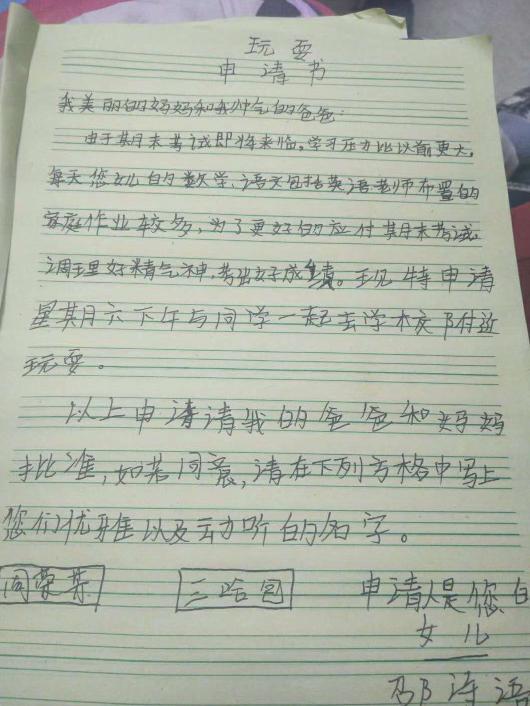 玩耍
申请书
我美丽的妈妈和我帅气的爸爸:
由于期末考试即将来临,学习压力比以前更大,
每天您女儿的数学、语文包括英语老师布置的
家庭作业较多,为了更好的应付期末考试,
调理好精气神,考出好成绩。现特申请
星期六下午与同学一起去学校附近
玩耍。
以上申请请我的爸爸和妈妈
批准,如若同意,请在下列方格中写上
您们优雅以及动听的名字。
周荣某 三哈包 申请人是您的
女儿
邵诗语